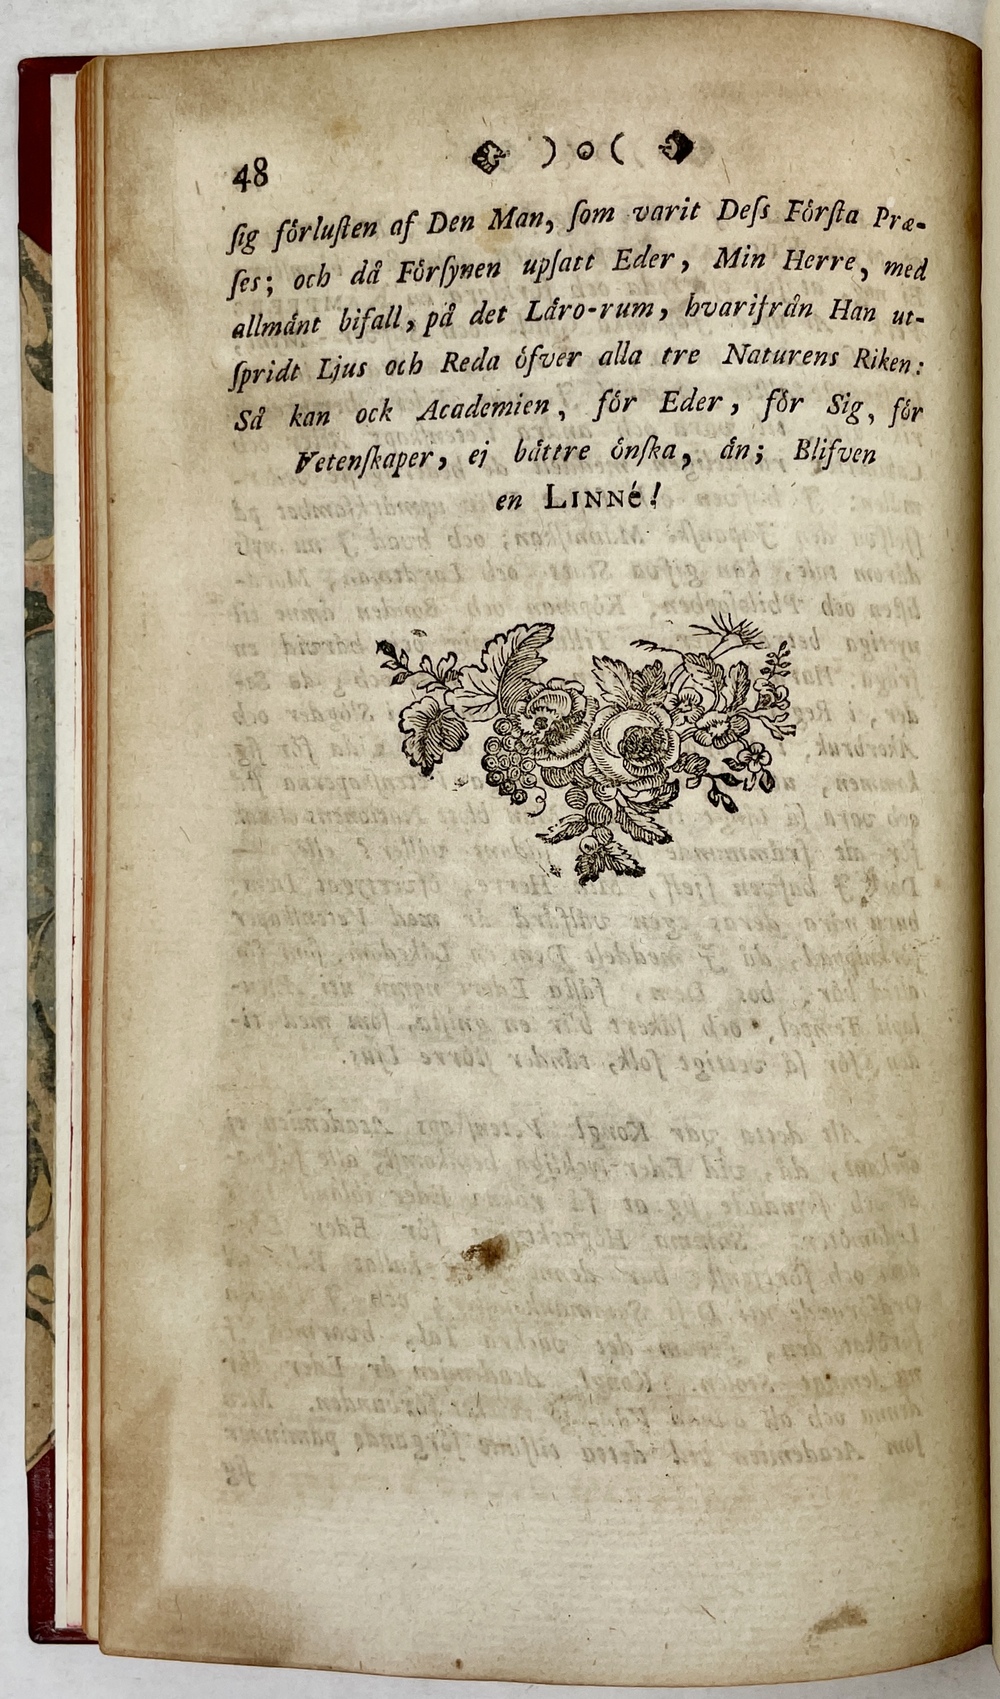 48 ) o (
ſig förluſten af Den Man, ſom varit Deſs Förſta Præ-
ſes; och då Förſynen upſatt Eder, Min Herre, med
allmänt bifall, på det Läro-rum, hvarifrån Han ut-
ſpridt Ljus och Reda öfver alla tre Naturens Riken:
Så kan ock Academien, för Eder, för Sig, för
Vetenſkaper, ej bättre önſka, än; Blifven
en LINNé!